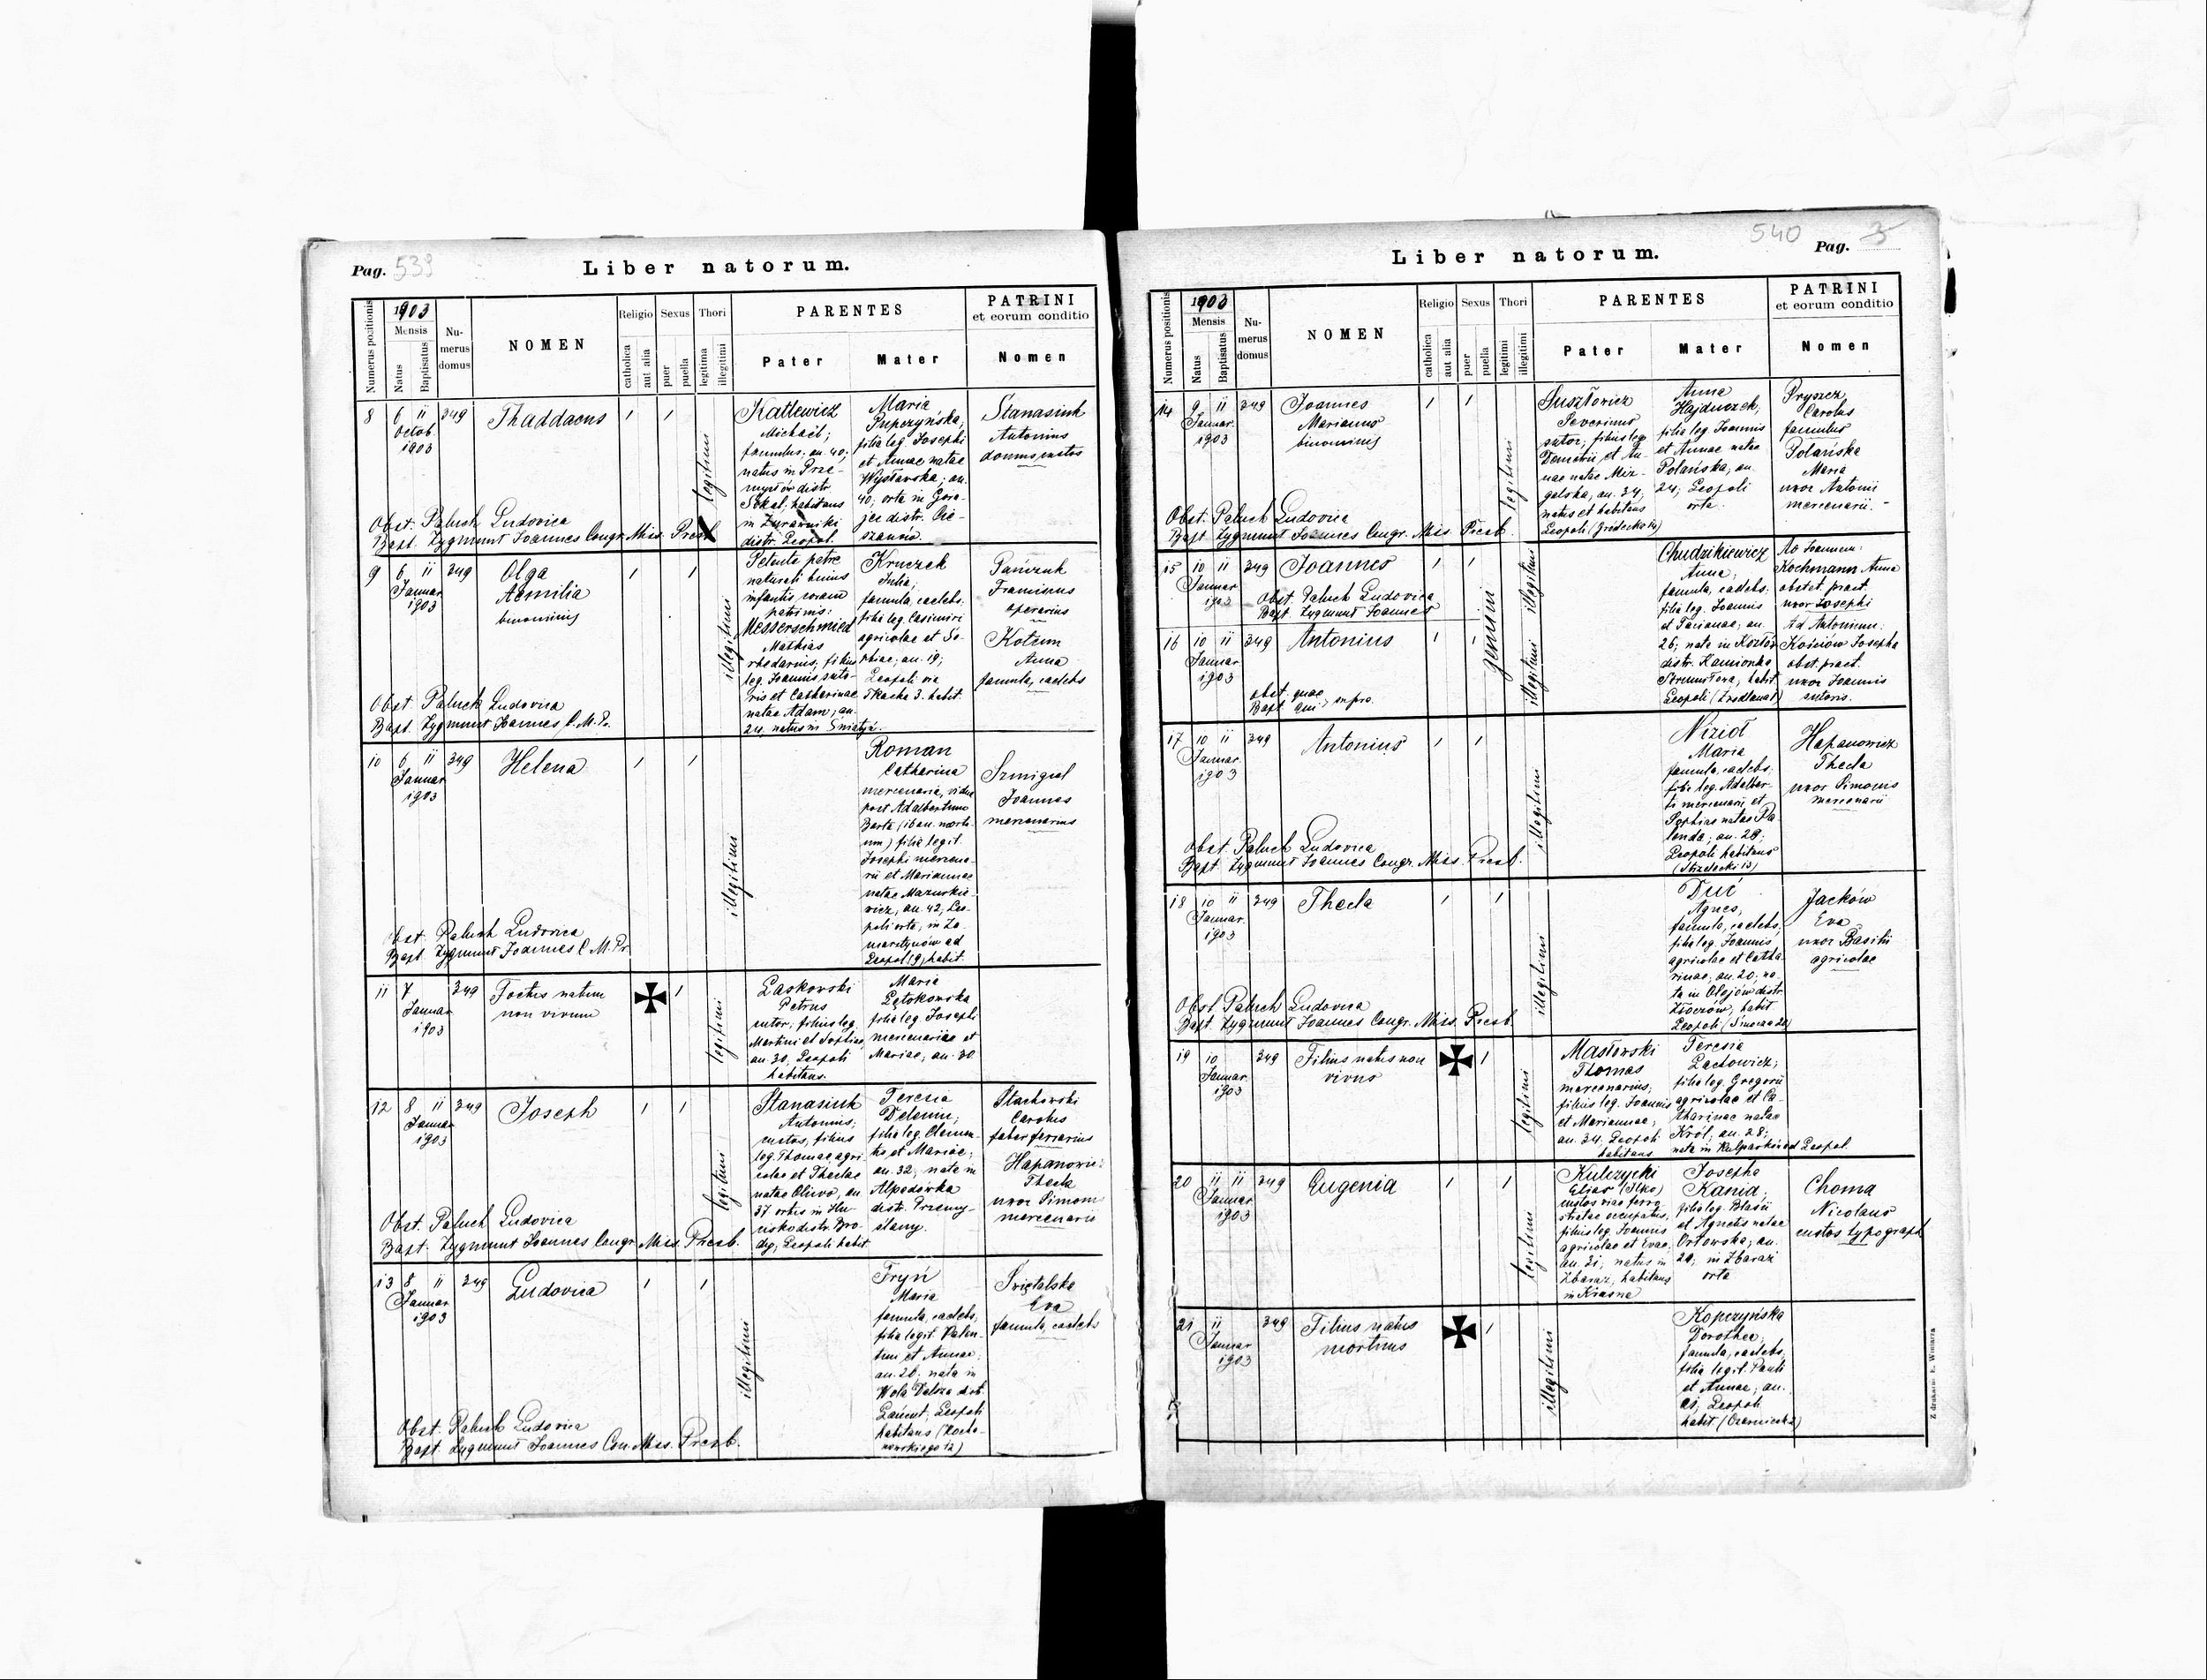 Pag. 539
Liber natorum.
Numerus positionis
1903
Mensis
Natus
Baptisatus
Nu-
merus
domus
NOMEN
Religio
catholica
aut alia
Sexus
puer
puella
Thori
legitima
illegitimi
PARENTES
Pater
Mater
PATRINI
et eorum conditio
Nomen
8
6 11
Octob.
1903
349
Thaddaeus
1
1
legitimi
Katlewicz
Michaël;
famulus; an. 40;
natus in Prze-
mysłów distr.
Sokal; habitans
in Żurawniki
distr. Leopol.
Maria
filia leg. Josephi
et Annae natae
40; orta in Gora-
jec distr. Cie-
szanów.
Stanasiuk
Antonius
domus custos
Obst. Paluch Ludovica
Bapt. Zygmunt Joannes Congr. Miss. Presb.
9
6 11
Januar
1903
349
Olga
Aemilia
binominis
1
1
illegitimi
Petente patre
naturali huius
infantis coram
patrinis:
Messerschmied
Mathias
rhedarius; filius
leg. Joannis suto-
ris et Catharinae
natae Adam; an.
24, natus in Śniatyń.
Kruczek
Julia,
famula, caelebs;
filia leg. Casimiri
agricolae et So-
phiae; an. 19;
Leopoli via
Tkacka 3. habit.
Pańczuk
Franciscus
operarius
Kotzun
Anna
famula, caelebs
Obst. Paluch Ludovica
Bapt. Zygmunt Joannes C. M. Pr.
10
6 11
Januar
1903
349
Helena
1
1
illegitimi
Roman
Catharina
mercenaria, vidua
post Adalbertum
um) filia legit.
Josephi mercena-
rii et Mariannae
natae Mazurkie-
wicz, an. 42, Leo-
poli orta, in Za-
marstynów ad
Leopol habit.
Szmigiel
Joannes
mercenarius
Obst. Paluch Ludovica
Bapt. Zygmunt Joannes C. M. Pr.
11
7
Januar
1903
349
Foetus natus
non vivus
1
legitimi
Laskowski
Petrus
sutor; filius leg.
Martini et Sophiae,
an. 30, Leopoli
habitans.
Maria
filia leg. Josephi
mercenarii et
Mariae, an. 30
12
8 11
Januar
1903
349
Joseph
1
1
legitimi
Stanasiuk
Antonius;
custos, filius
leg. Thomae agri-
colae et Theclae
natae Oliwa, an.
37 ortus in Hu-
cisko distr. Bro-
dy, Leopoli habit.
Teresia
filia leg. Clemen-
tis et Mariae;
an. 32, nata in
distr. Przemy-
ślany.
Stachowski
Carolus
faber ferrarius
Hapanowicz
Thecla
uxor Simonis
mercenarii
Obst. Paluch Ludovica
Bapt. Zygmunt Joannes Congr. Miss. Presb.
13
8 11
Januar
1903
349
Ludovica
1
1
illegitimi
Fryń
Maria
famula, caelebs,
filia legit. Valen-
tini et Annae;
an. 26; nata in
Wola Dalsza distr.
Łańcut; Leopoli
habitans (Kocha-
nowskiego 12)
Świetalska
Eva
famula, caelebs
Obst. Paluch Ludovica
Bapt. Zygmunt Joannes Con. Miss. Presb.
540
Pag. 3
Liber natorum.
Numerus positionis
1903
Mensis
Natus
Baptisatus
Nu-
merus
domus
NOMEN
Religio
catholica
aut alia
Sexus
puer
puella
Thori
legitimi
illegitimi
PARENTES
Pater
Mater
PATRINI
et eorum conditio
Nomen
14
9 11
Januar.
1903
349
Joannes
Marianus
binominis
1
1
legitimi
Suszłowicz
Severinus
sutor; filius leg.
Demetrii et An-
nae natae Miz-
galska, an. 34;
natus et habitans
Leopoli (Gródecka 14)
Anna
Hajduczek,
filia leg. Joannis
et Annae natae
Polańska, an.
24; Leopoli
orta.
Pryszcz
Carolus
famulus
Polańska
Maria
uxor Antonii
mercenarii.
Obst. Paluch Ludovica
Bapt. Zygmunt Joannes Congr. Miss. Presb.
15
10 11
Januar
1903
349
Joannes
1
1
gemini
illegitimi
Obst. Paluch Ludovica
Bapt. Zygmunt Joannes
Chudzikiewicz
Anna,
famula, caelebs;
filia leg. Joannis
et Tacianae; an.
26; nata in Kozłów
distr. Kamionka
Strumiłowa, habit.
Leopoli (Źródlana 7)
Ad Joannem:
Kochmann Anna
obstet. pract.
uxor Josephi
Ad Antonium:
Kościów Josepha
obst. pract.
uxor Joannis
sutoris.
16
10 11
Januar
1903
349
Antonius
1
1
illegitimi
obst. quae
Bapt. qui supra.
17
10 11
Januar
1903
349
Antonius
1
1
illegitimi
Nizioł
Maria
famula, caelebs;
filia leg. Adalber-
ti mercenarii et
Sophiae natae Pa-
landa; an. 28;
Leopoli habitans
(Strzelecki 13)
Hapanowicz
Thecla
uxor Simonis
mercenarii
Obst. Paluch Ludovica
Bapt. Zygmunt Joannes Congr. Miss. Presb.
18
10 11
Januar
1903
349
Thecla
1
1
illegitimi
Duć
Agnes,
famula, caelebs,
filia leg. Joannis
agricolae et Catha-
rinae; an. 20; na-
ta in Olejów distr.
Złoczów, habit.
Leopoli
Jacków
Eva
uxor Basilii
agricolae
Obst. Paluch Ludovica
Bapt. Zygmunt Joannes Congr. Miss. Presb.
19
10
Januar
1903
349
Filius natus non
vivus
1
legitimi
Masłowski
Thomas
mercenarius,
filius leg. Joannis
et Mariannae,
an. 34, Leopoli
habitans
Teresia
Lachowicz;
filia leg. Gregorii
agricolae et Ca-
tharinae natae
Król; an. 28;
nata in Kulparków ad Leopol.
20
11 11
Januar
1903
349
Eugenia
1
1
legitimi
Kulczycki
Elias (Ilko)
custos viae ferro
stratae occupatus,
filius leg. Joannis
agricolae et Evae;
an. 31; natus in
Zbaraż, habitans
in Krasne
Josepha
Kania;
filia leg. Blasii
et Agnetis natae
Orłowska; an.
29; in Zbaraż
orta
Choma
Nicolaus
custos typograph
21
11
Januar
1903
349
Filius natus
mortuus
1
illegitimi
Kopczyńska
Dorothea,
famula, caelebs,
filia legit. Pauli
et Annae; an.
21; Leopoli
habit.
Z drukarni E. Winiarza